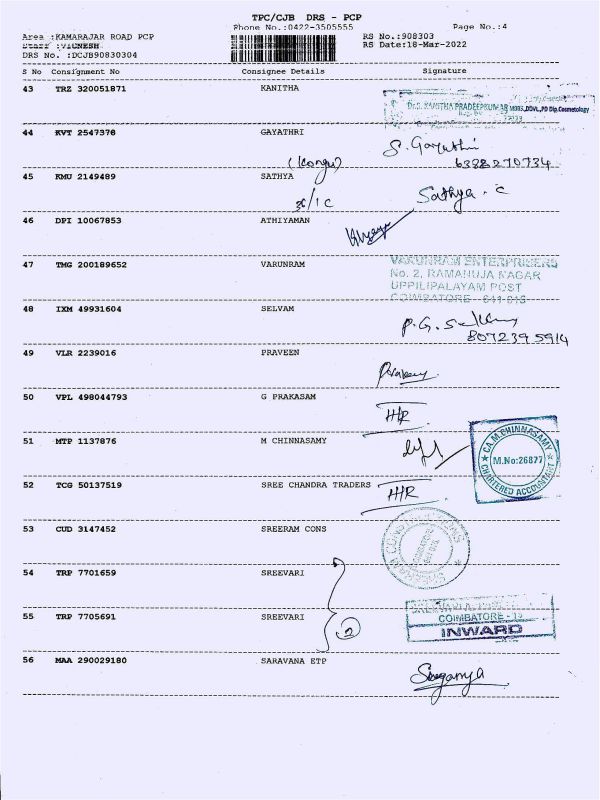 TPC/CJB DRS - PCP
Phone No.:0422-3505555 Page No.:4
Area :KAMARAJAR ROAD PCP RS No.:908303
Staff :VIGNESH RS Date:18-Mar-2022
DRS No. :DCJB90830304
S No Consignment No Consignee Details Signature
43 TRZ 320051871 KANITHA
Dr.S. KANITHA PRADEEPKUMAR MBBS.,DDVL.,PD Dip.Cosmetology
44 KVT 2547378 GAYATHRI
S. Gayathri
(Kongu) 6388270734
45 KMU 2149489 SATHYA
Sathya . C
46 DPI 10067853 ATHIYAMAN
47 TMG 200189652 VARUNRAM
VARUNRAM ENTERPRISERS
No. 2, RAMANUJA NAGAR
UPPILIPALAYAM POST
COIMBATORE - 641 015
48 IXM 49931604 SELVAM
P.G. S
8072395914
49 VLR 2239016 PRAVEEN
50 VPL 498044793 G PRAKASAM
H/R
51 MTP 1137876 M CHINNASAMY
CA. M. CHINNASAMY
M.No:26877
CHARTERED ACCOUNTANT
52 TCG 50137519 SREE CHANDRA TRADERS
H/R
53 CUD 3147452 SREERAM CONS
54 TRP 7701659 SREEVARI
55 TRP 7705691 SREEVARI
2
COIMBATORE - 15
INWARD
56 MAA 290029180 SARAVANA ETP
Suganya